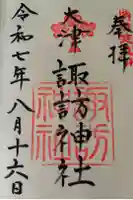 奉拝
大津
諏訪神社
諏訪神社
令和七年八月十六日